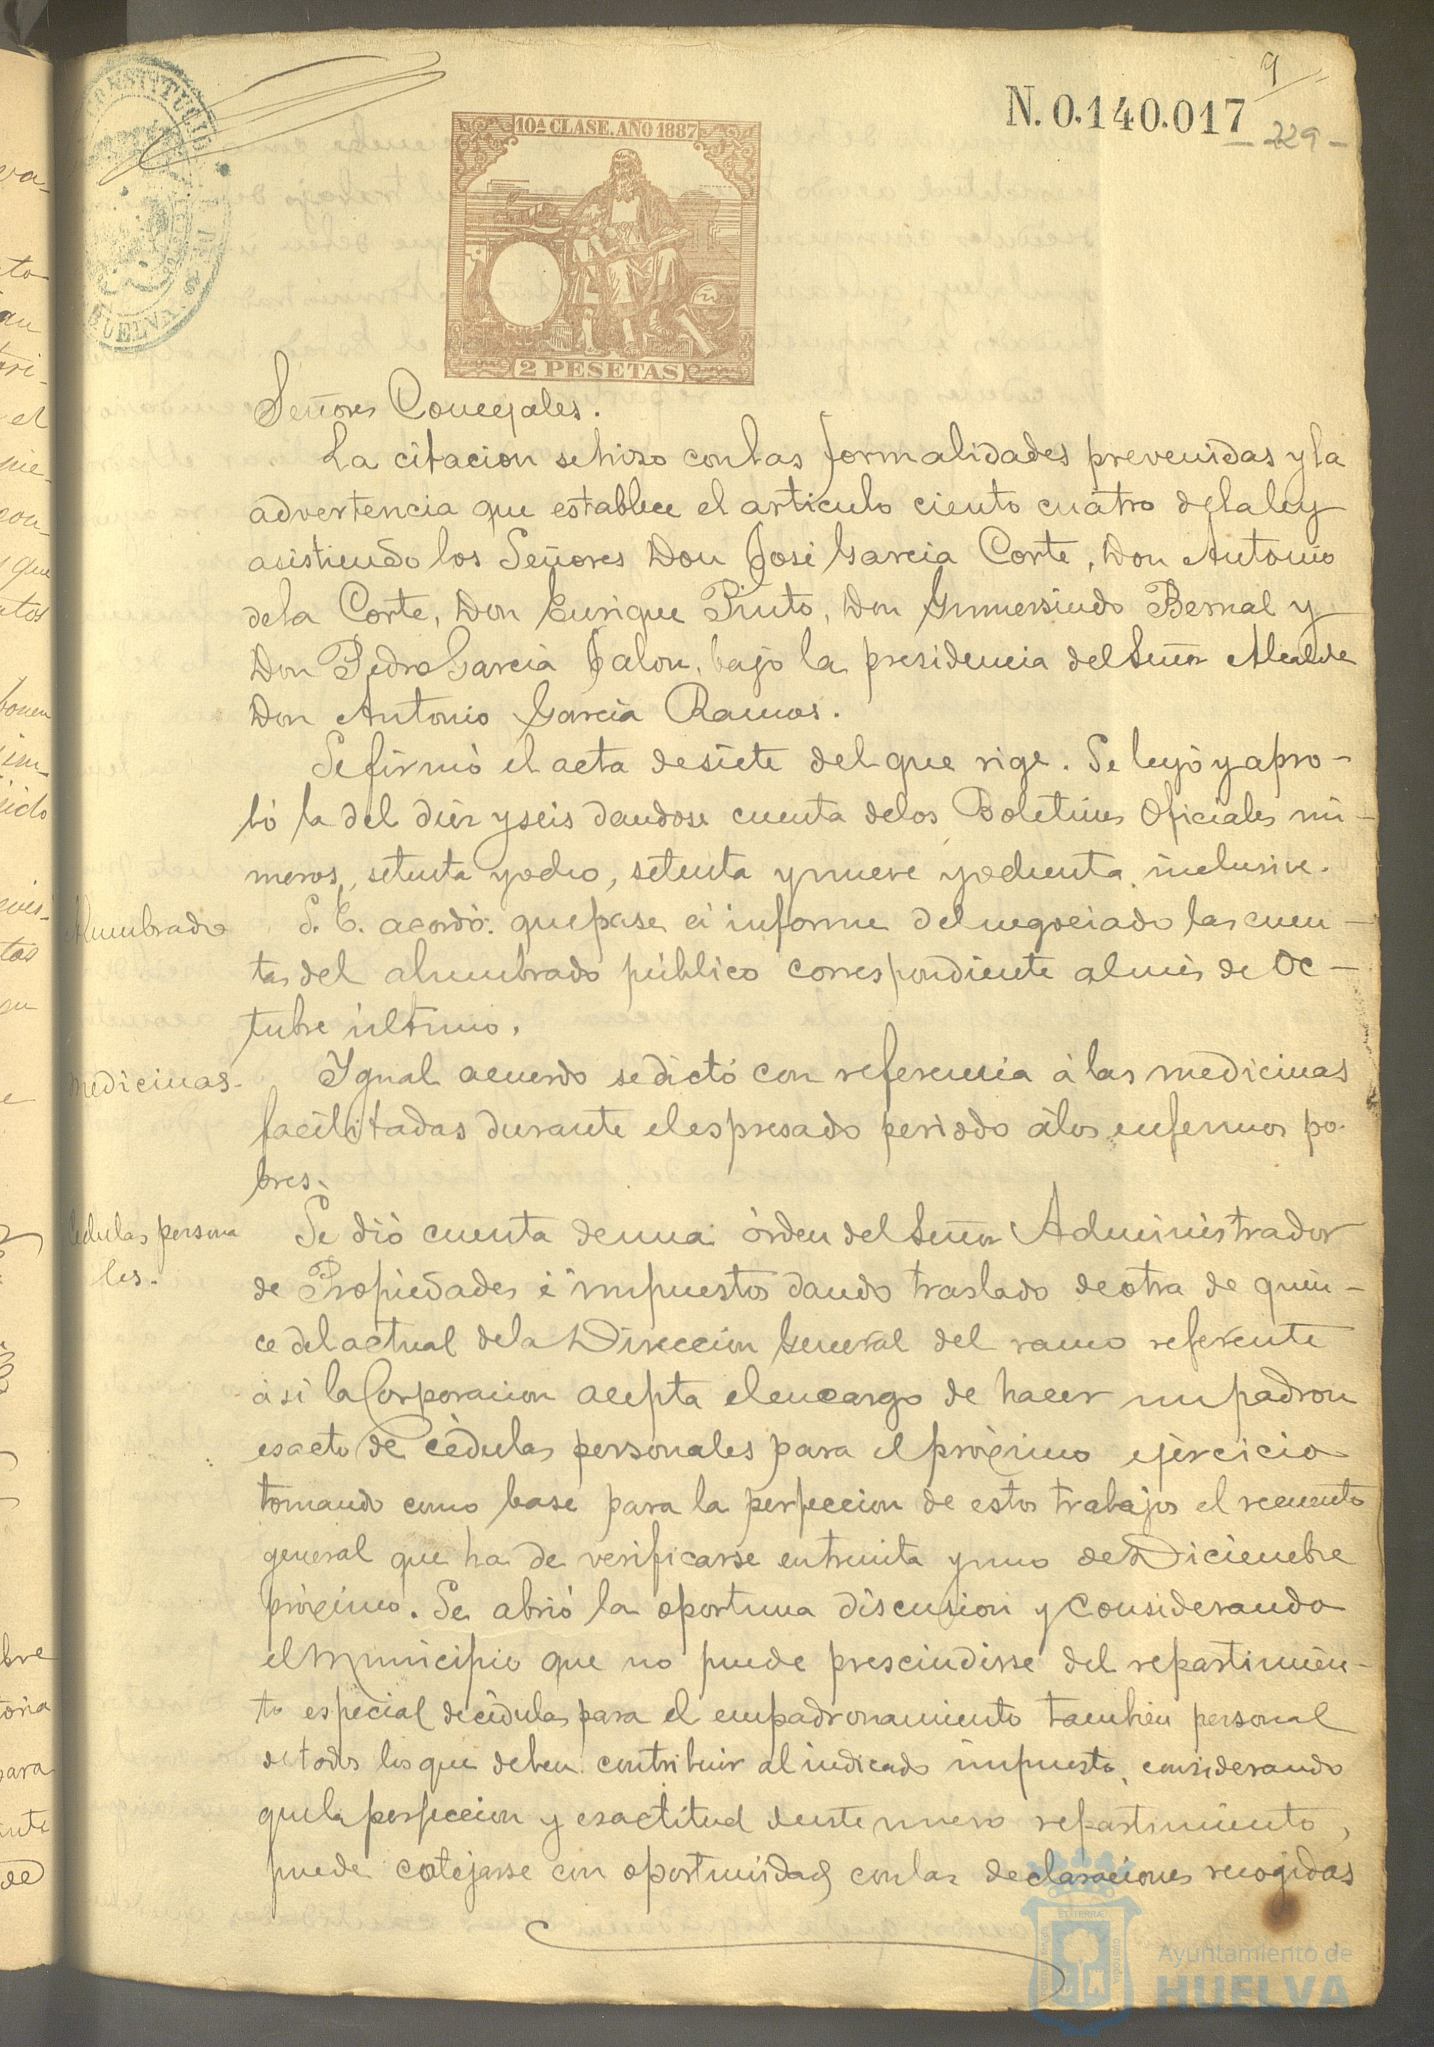 9
N. 0.140.017
229
CONSTITUCIO
HUELVA
10ª CLASE. AÑO 1887
2 PESETAS
Señores Concejales.
La citacion se hizo con las formalidades prevenidas y la
advertencia que establece el articulo ciento cuatro de la ley
asistiendo los Señores Don José Garcia Corte, Don Antonio
de la Corte, Don Enrique Pinto, Don Gumersindo Bernal y
Don Pedro Garcia Jalon, bajo la presidencia del Señor Alcalde
Don Antonio Garcia Ramos.
Se firmó el acta de siete del que rige. Se leyó y apro-
bó la del diez y seis dandose cuenta de los Boletines Oficiales nú-
meros, setenta y ocho, setenta y nueve y ochenta inclusive.
Alumbrado
S. E. acordó: que pase á informe del negociado las cuen-
tas del alumbrado público correspondiente al mes de Oc-
tubre último.
Medicinas.
Ygual acuerdo se dictó con referencia á las medicinas
facilitadas durante el espresado periodo á los enfermos po-
bres.
Cedulas persona
les.
Se dió cuenta de una órden del Señor Administrador
de Propiedades é impuestos dando traslado de otra de quin-
ce del actual de la Direccion General del ramo referente
á si la Corporacion acepta el encargo de hacer un padron
esacto de cédulas personales para el próximo ejercicio
tomando como base para la perfeccion de estos trabajos el recuento
general que ha de verificarse en treinta y uno de Diciembre
próximo. Se abrió la oportuna discusion y considerando
el Municipio que no puede prescindirse del repartimien-
to especial de cédulas para el empadronamiento tambien personal
de todos los que deben contribuir al indicado impuesto, considerando
que la perfeccion y esactitud de este nuevo repartimiento,
puede cotejarse con oportunidad con las declaraciones recogidas
Ayuntamiento de
HUELVA